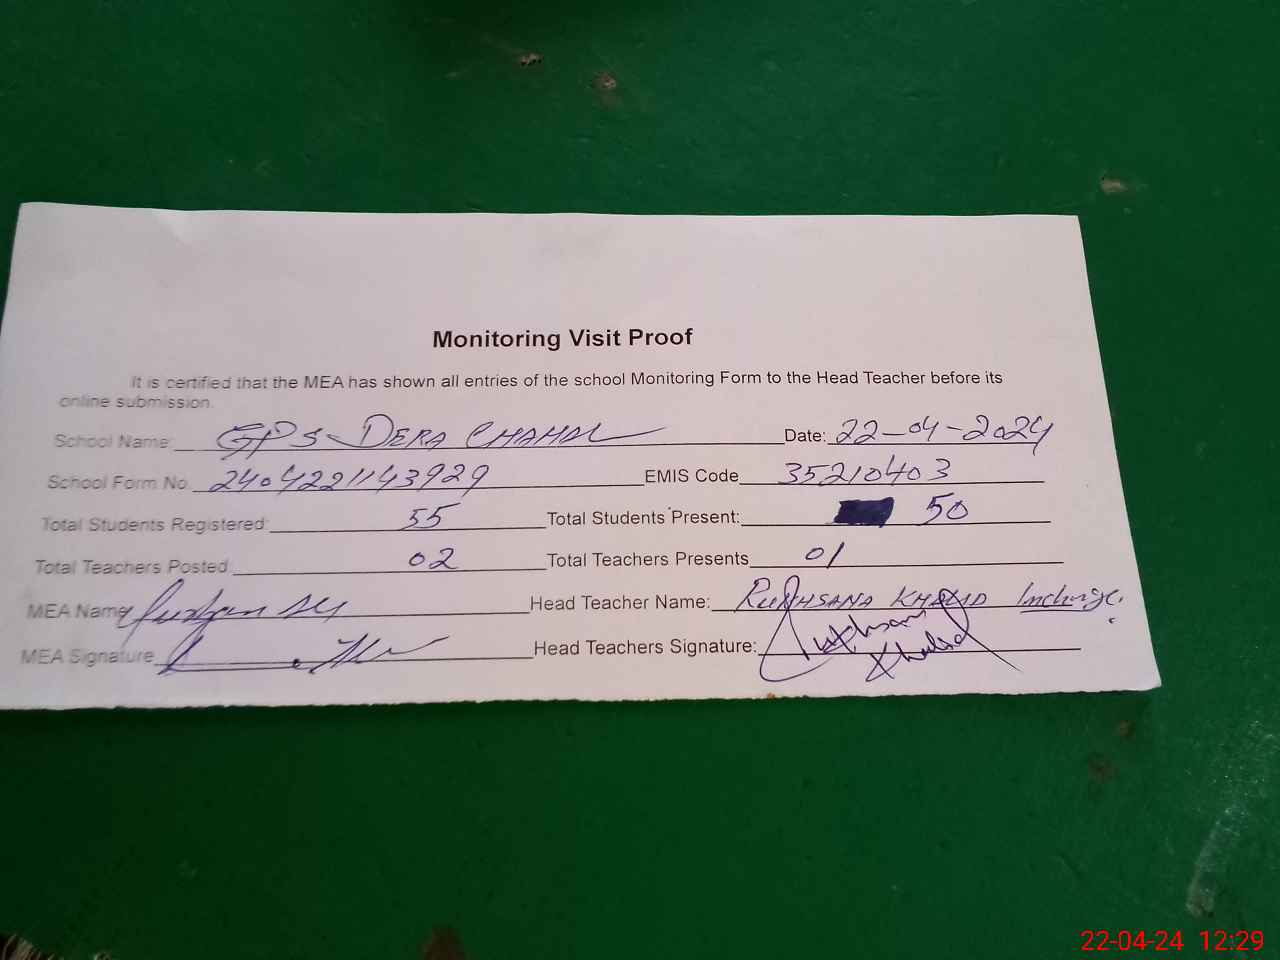 Monitoring Visit Proof
It is certified that the MEA has shown all entries of the school Monitoring Form to the Head Teacher before its
online submission.
School Name: GPS DERA CHAHAL Date: 22-04-2024
School Form No. 2404221143929 EMIS Code 35210403
Total Students Registered: 55 Total Students Present: 50
Total Teachers Posted 02 Total Teachers Presents 01
MEA Name Head Teacher Name: RUKHSANA KHALID Incharge.
MEA Signature Head Teachers Signature: Rukhsana
Khalid
22-04-24 12:29